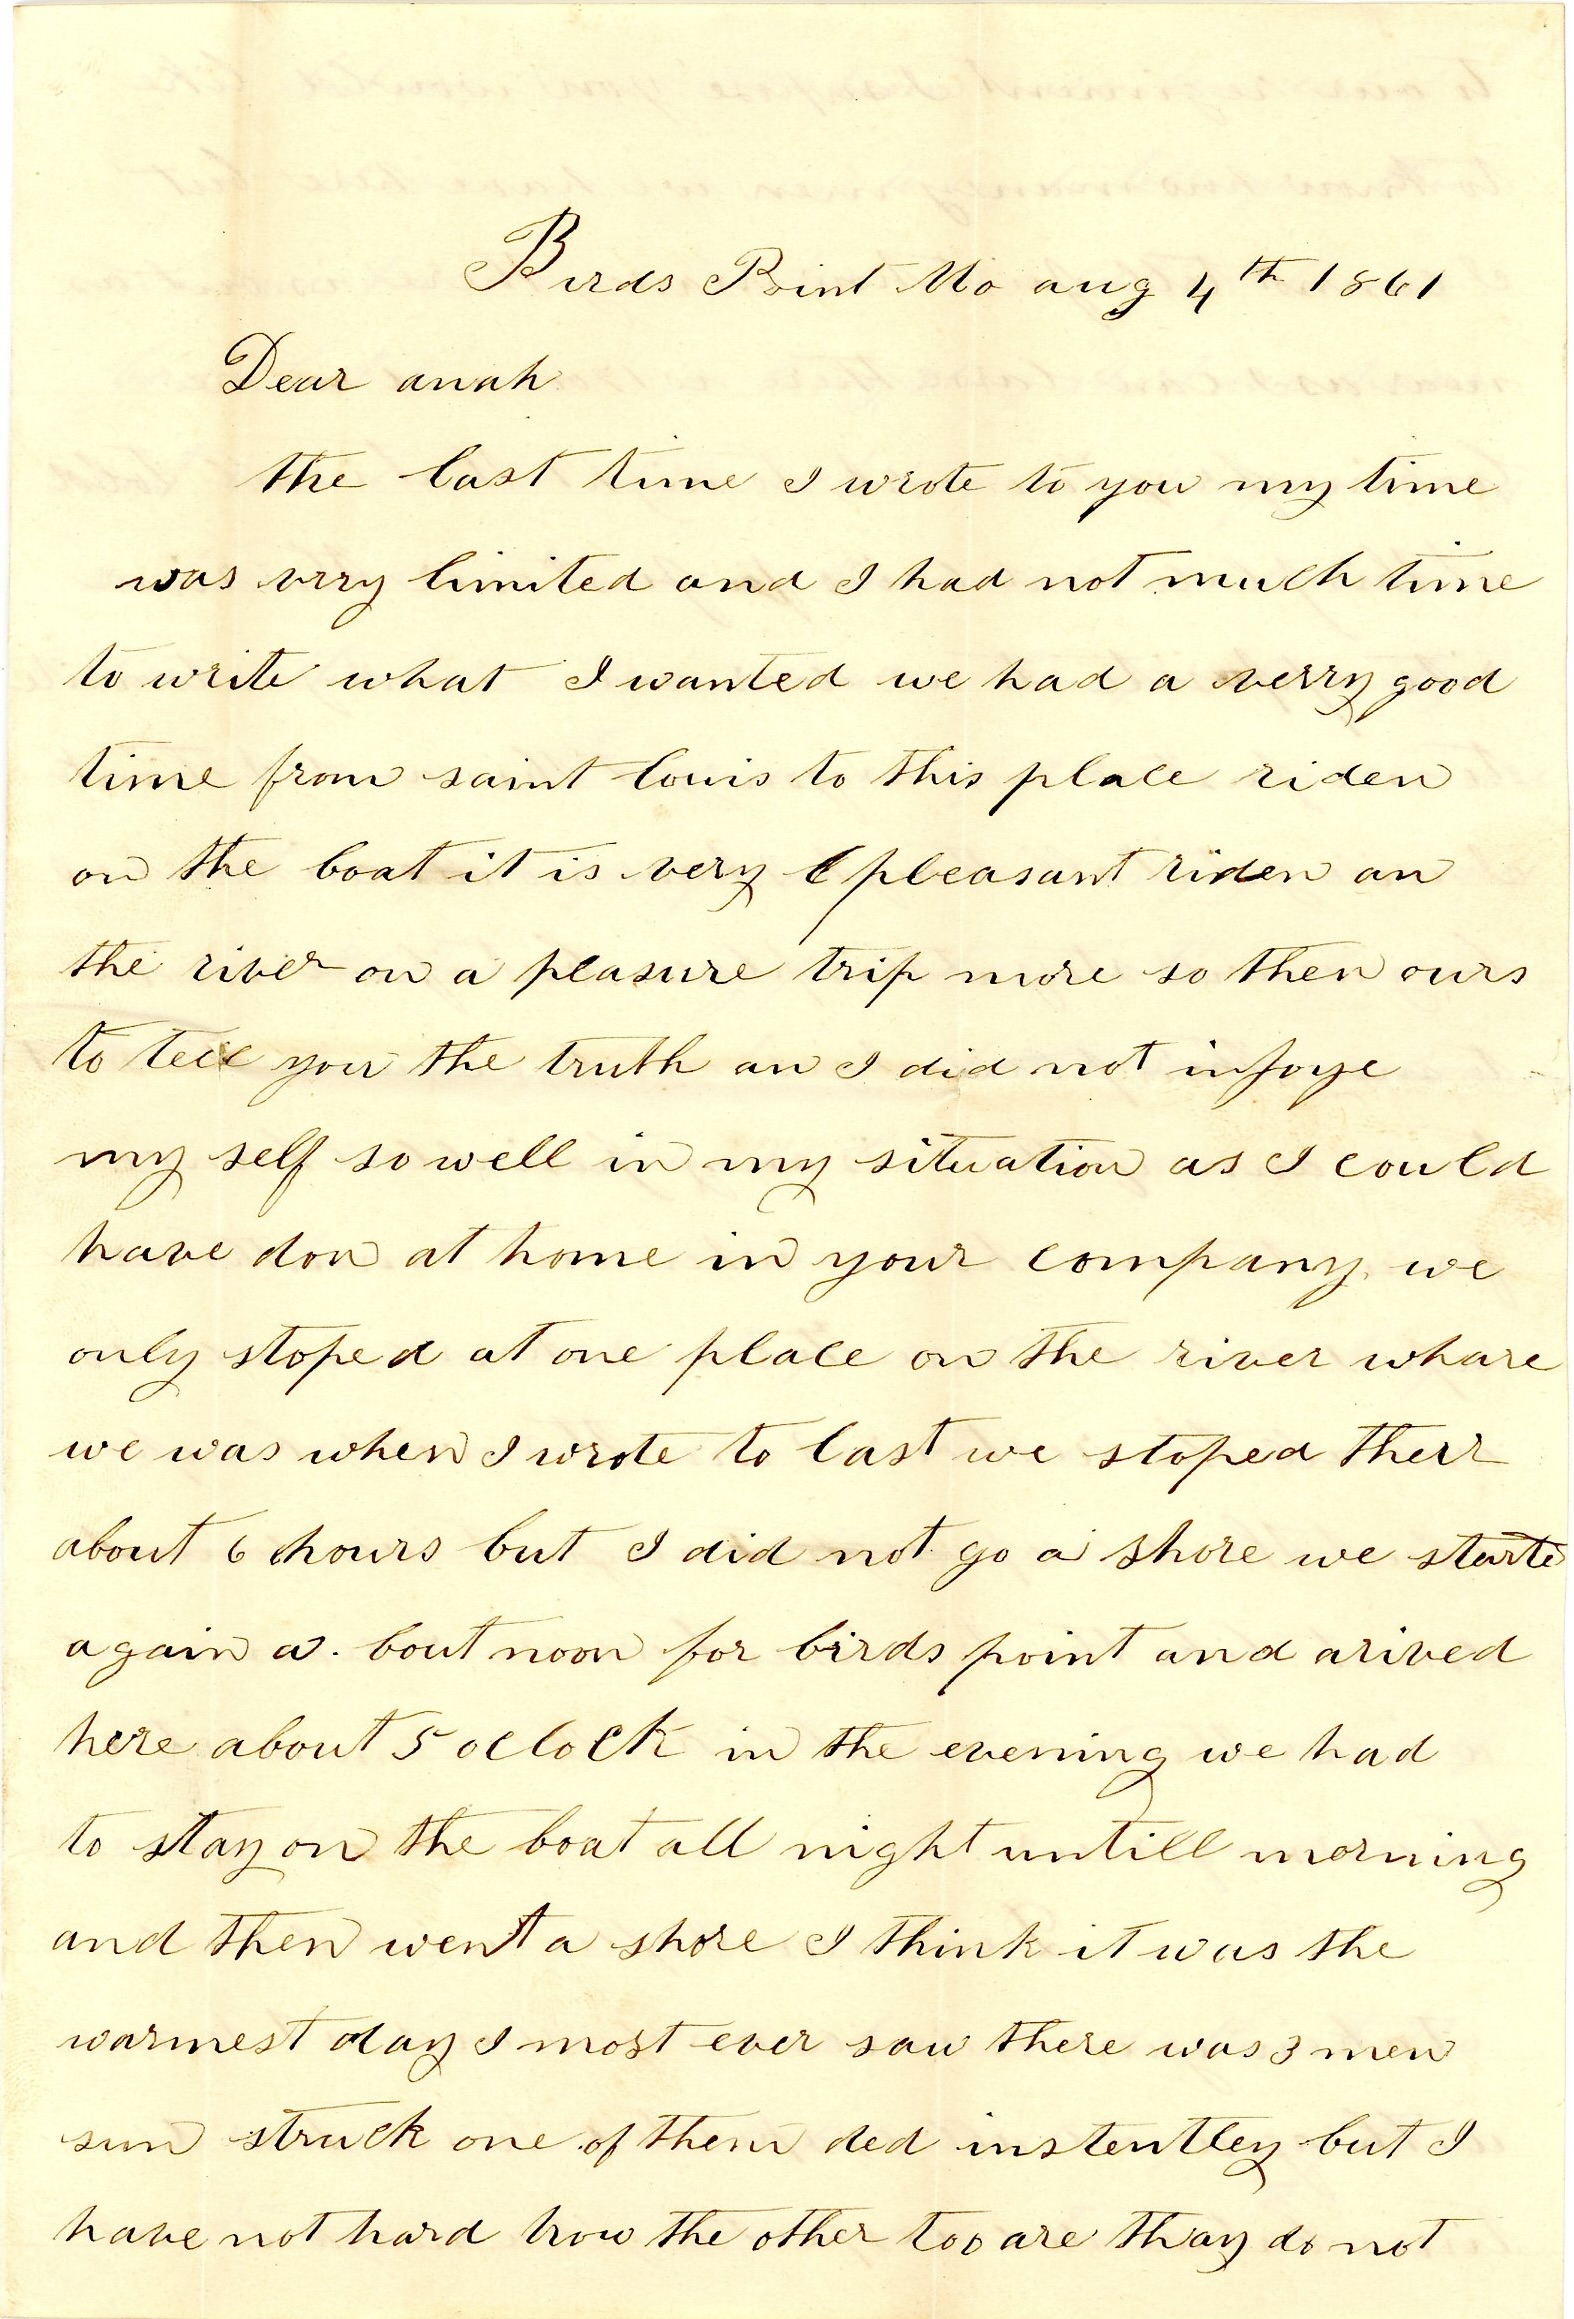 Birds Point Mo aug 4th 1861
Dear anah
the last time I wrote to you my time
was vrry limited and I had not much time
to write what I wanted we had a verry good
time from saint louis to this place riden
on the boat it is very pleasant riden an
the river on a pleasure trip more so then ours
to tell you the truth an I did not injoye
my self so well in my situation as I could
have don at home in your company. we
only stoped at one place on the river whare
we was when I wrote to last we stoped therr
about 6 hours but I did not go a shore we starte
again a. bout noon for birds point and arived
here about 5 oclock in the evening we had
to stay on the boat all night untill morning
and then went a shore I think it was the
warmest day I most ever saw there was 3 men
sun struck one of them ded instentley but I
have not hard how the other too are thay do not